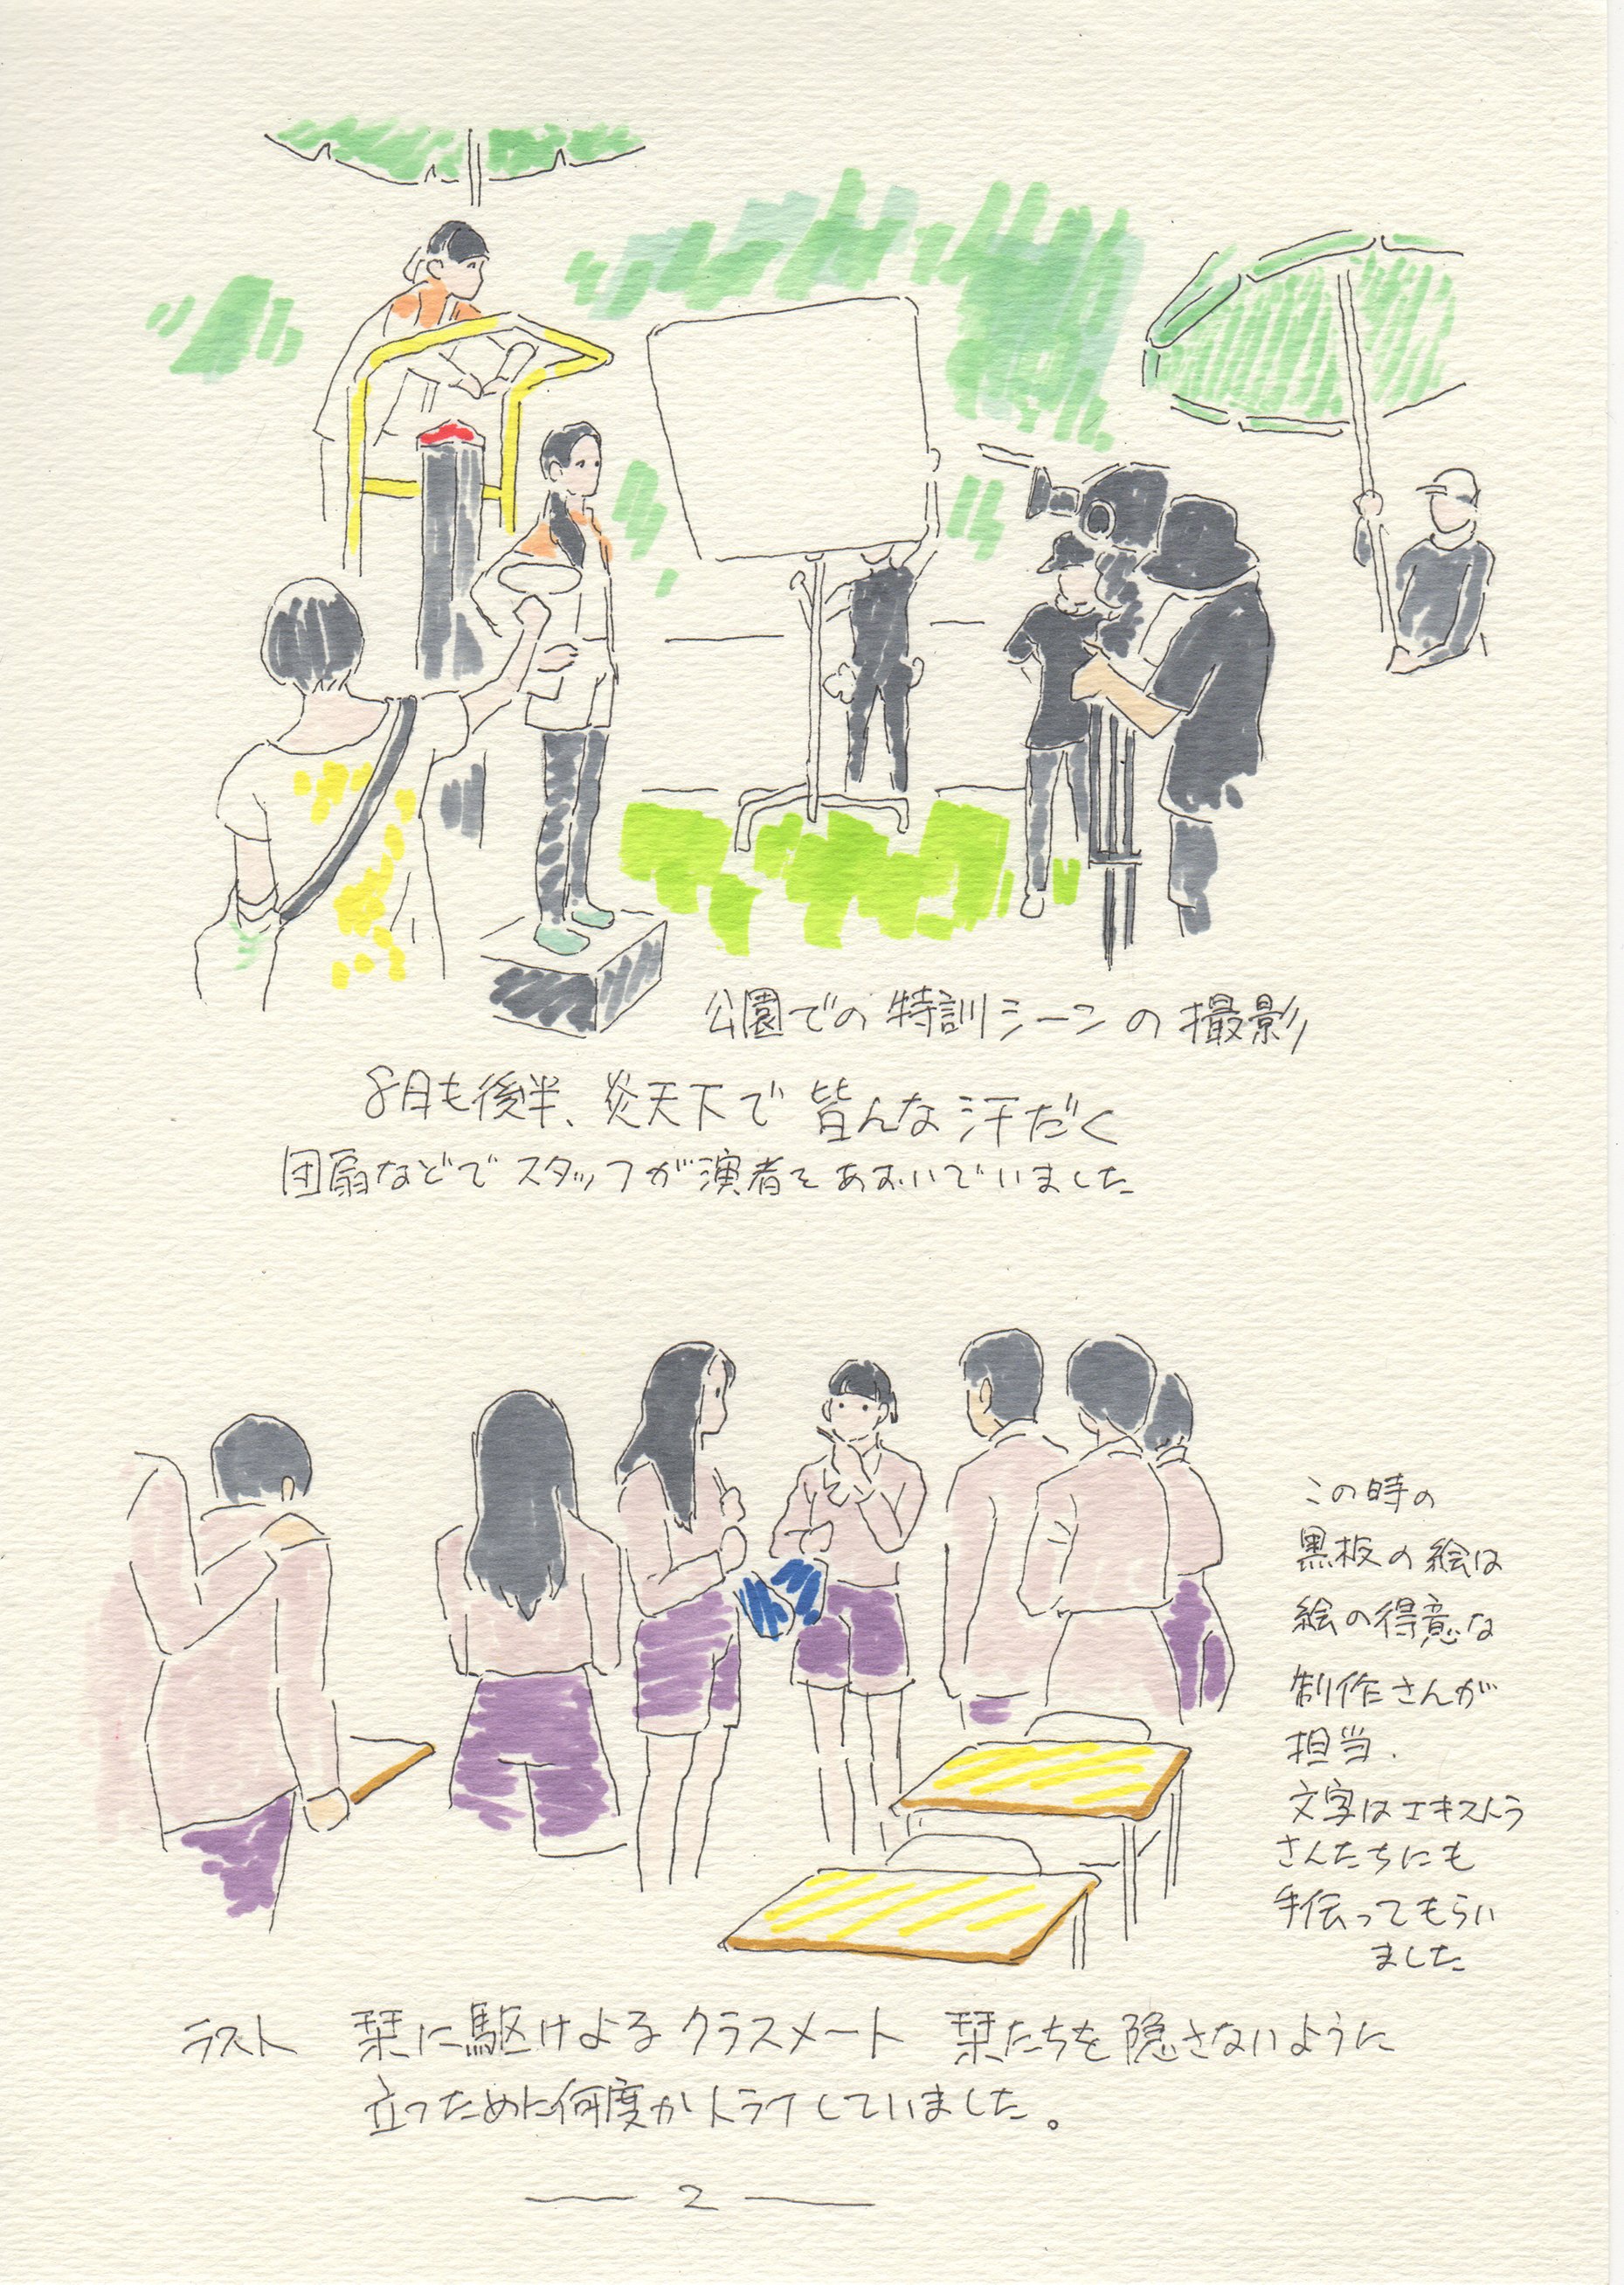 公園での特訓シーンの撮影
8月も後半、炎天下で皆んな汗だく
団扇などでスタッフが演者をあおいでいました
この時の
黒板の絵は
絵の得意な
制作さんが
担当.
文字はエキストラ
さんたちにも
手伝ってもらい
ました
ラスト 栞に駆けよるクラスメート 栞たちを隠さないように
立つために何度かトライしていました。
— 2 —